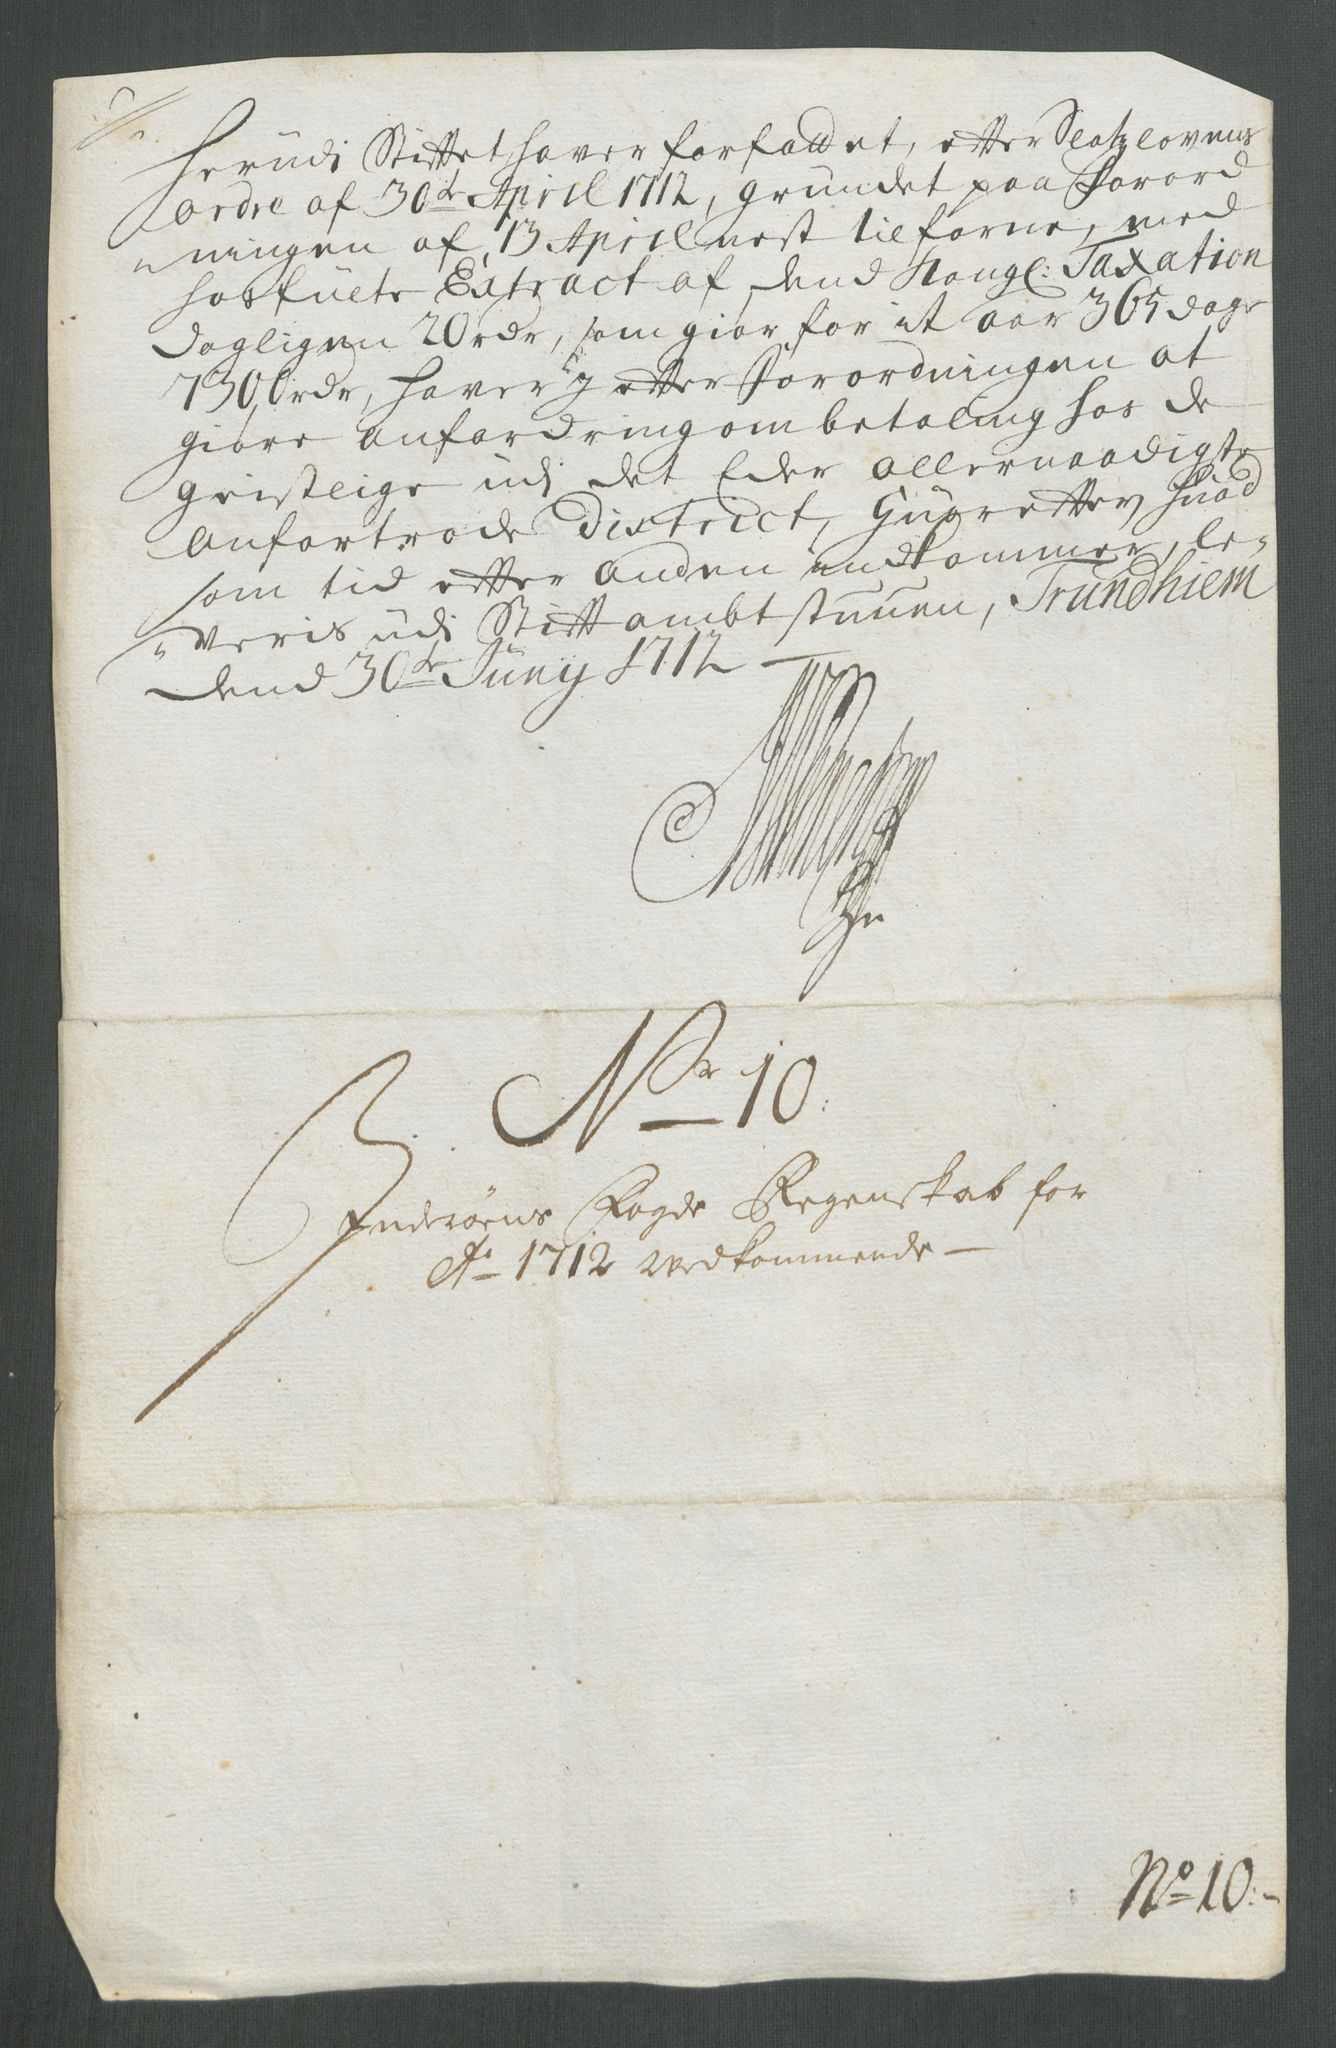 herudi Stiftet haver forfattet, efter Slotzlovens
ordre af 30de April 1712, grundet paa Forord
"ningen af 13 April nest tilforne, med
hosfuite Extract af dend Kongl: Taxation
dagligen 20 rdr, som giør for it aar 365 dage
7300 rdr, haver j efter Forordningen at
giøre anfordring om betaling hos de
geistlige udi det Eder allernaadigste
anfortrode District, Huoreffter huad
som tid efter anden indkommer, le"
"veris udi Stiftambtstuuen, Trundhiem
dend 30de Juny 1712
Nr 10:
Inderøens Fogde Regenskab for
Ao 1712 vedkommende
No 10: